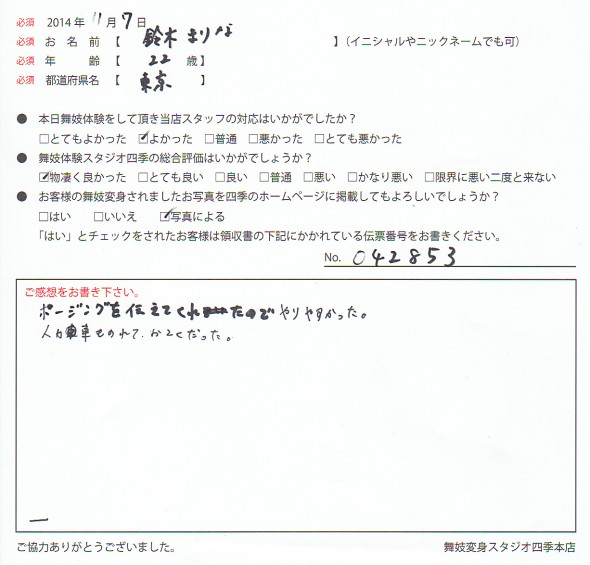 必須 2014年 11月7日
必須 お名前【 鈴木まりな 】(イニシャルやニックネームでも可)
必須 年齢【 22 歳】
必須 都道府県名【 東京 】
● 本日舞妓体験をして頂き当店スタッフの対応はいかがでしたか？
□とてもよかった ☑よかった □普通 □悪かった □とても悪かった
● 舞妓体験スタジオ四季の総合評価はいかがでしょうか？
☑物凄く良かった □とても良い □良い □普通 □悪い □かなり悪い □限界に悪い二度と来ない
● お客様の舞妓変身されましたお写真を四季のホームページに掲載してもよろしいでしょうか？
□はい □いいえ ☑写真による
「はい」とチェックをされたお客様は領収書の下記にかかれている伝票番号をお書きください。
No. 042853
ご感想をお書き下さい。
ポージングを伝えてくれたのでやりやすかった。
人力車ものれて、かくだった。
ご協力ありがとうございました。
舞妓変身スタジオ四季本店